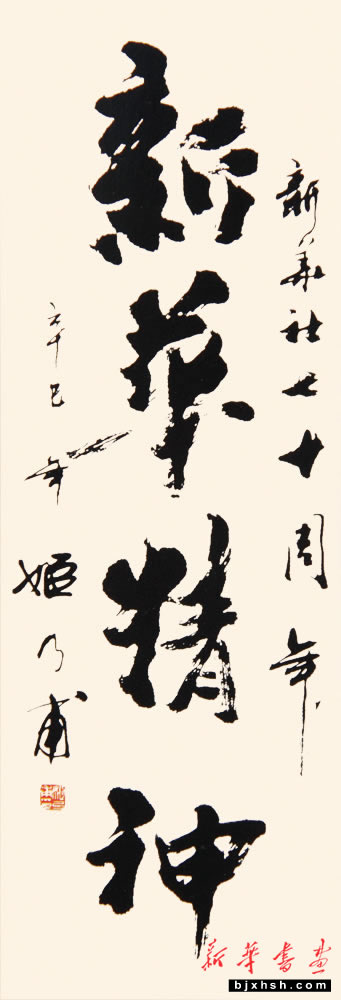 新华社七十周年
新华精神
辛巳年
姬乃甫
新華書畫
bjxhsh.com